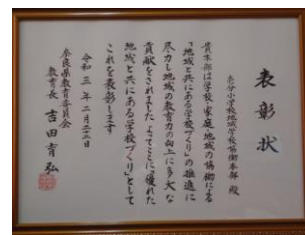 表彰状
壱分小学校地域学校協働本部 殿
貴本部は学校・家庭・地域の協働による
「地域と共にある学校づくり」の推進に
尽力し地域の教育力の向上に多大な
貢献をされました よってここに「優れた
地域と共にある学校づくり」として
これを表彰します
令和三年二月二十三日
奈良県教育委員会
教育長 吉田育弘